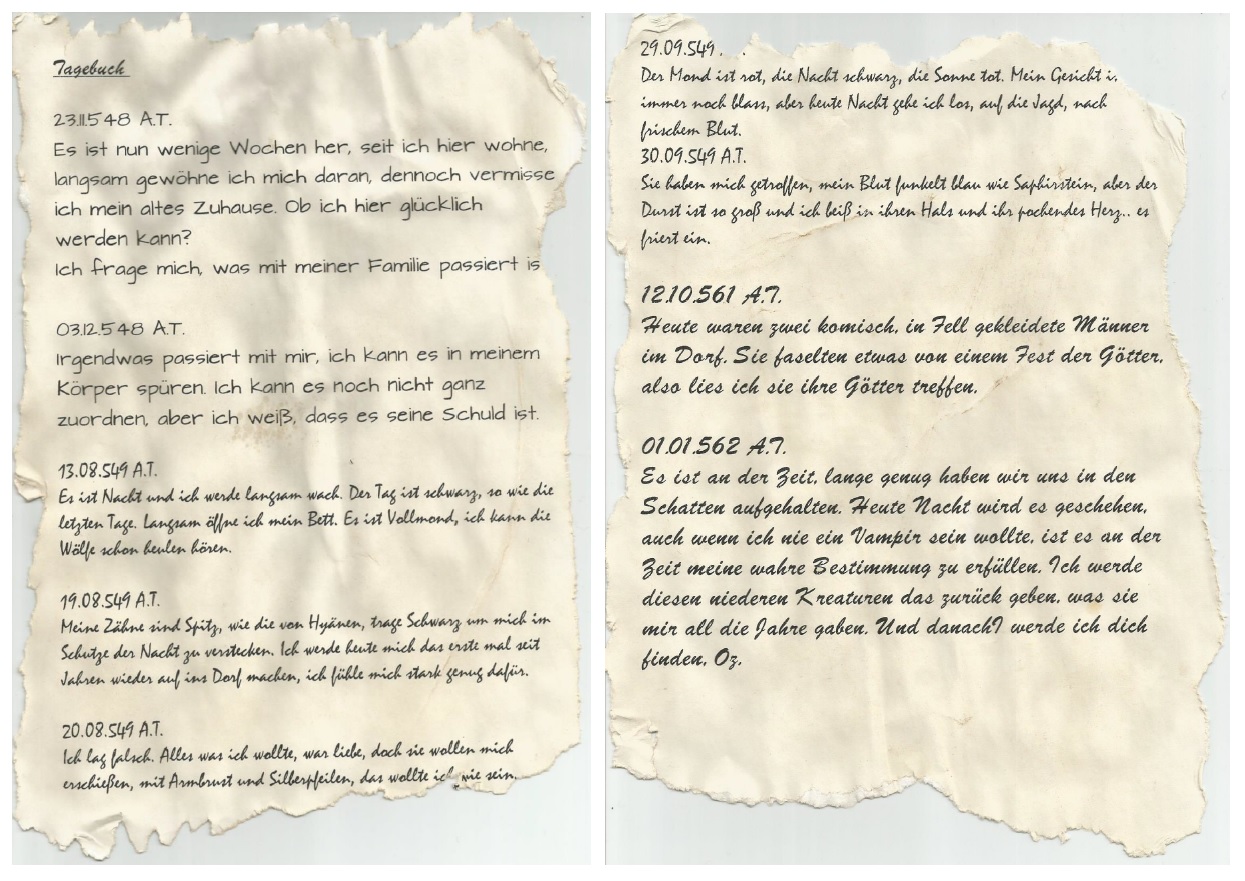 Tagebuch
23.11.548 A.T.
Es ist nun wenige Wochen her, seit ich hier wohne,
langsam gewöhne ich mich daran, dennoch vermisse
ich mein altes Zuhause. Ob ich hier glücklich
werden kann?
Ich frage mich, was mit meiner Familie passiert is
03.12.548 A.T.
Irgendwas passiert mit mir, ich kann es in meinem
Körper spüren. Ich kann es noch nicht ganz
zuordnen, aber ich weiß, dass es seine Schuld ist.
13.08.549 A.T.
Es ist Nacht und ich werde langsam wach. Der Tag ist schwarz, so wie die
letzten Tage. Langsam öffne ich mein Bett. Es ist Vollmond, ich kann die
Wölfe schon heulen hören.
19.08.549 A.T.
Meine Zähne sind Spitz, wie die von Hyänen, trage Schwarz um mich im
Schutze der Nacht zu verstecken. Ich werde heute mich das erste mal seit
Jahren wieder auf ins Dorf machen, ich fühle mich stark genug dafür.
20.08.549 A.T.
Ich lag falsch. Alles was ich wollte, war liebe, doch sie wollen mich
erschießen, mit Armbrust und Silberpfeilen, das wollte ich nie sein.
29.09.549
Der Mond ist rot, die Nacht schwarz, die Sonne tot. Mein Gesicht i
immer noch blass, aber heute Nacht gehe ich los, auf die Jagd, nach
frischem Blut.
30.09.549 A.T.
Sie haben mich getroffen, mein Blut funkelt blau wie Saphirstein, aber der
Durst ist so groß und ich beiß in ihren Hals und ihr pochendes Herz.. es
friert ein.
12.10.561 A.T.
Heute waren zwei komisch, in Fell gekleidete Männer
im Dorf. Sie faselten etwas von einem Fest der Götter,
also lies ich sie ihre Götter treffen.
01.01.562 A.T.
Es ist an der Zeit, lange genug haben wir uns in den
Schatten aufgehalten. Heute Nacht wird es geschehen,
auch wenn ich nie ein Vampir sein wollte, ist es an der
Zeit meine wahre Bestimmung zu erfüllen. Ich werde
diesen niederen Kreaturen das zurück geben, was sie
mir all die Jahre gaben. Und danach? werde ich dich
finden, Oz.